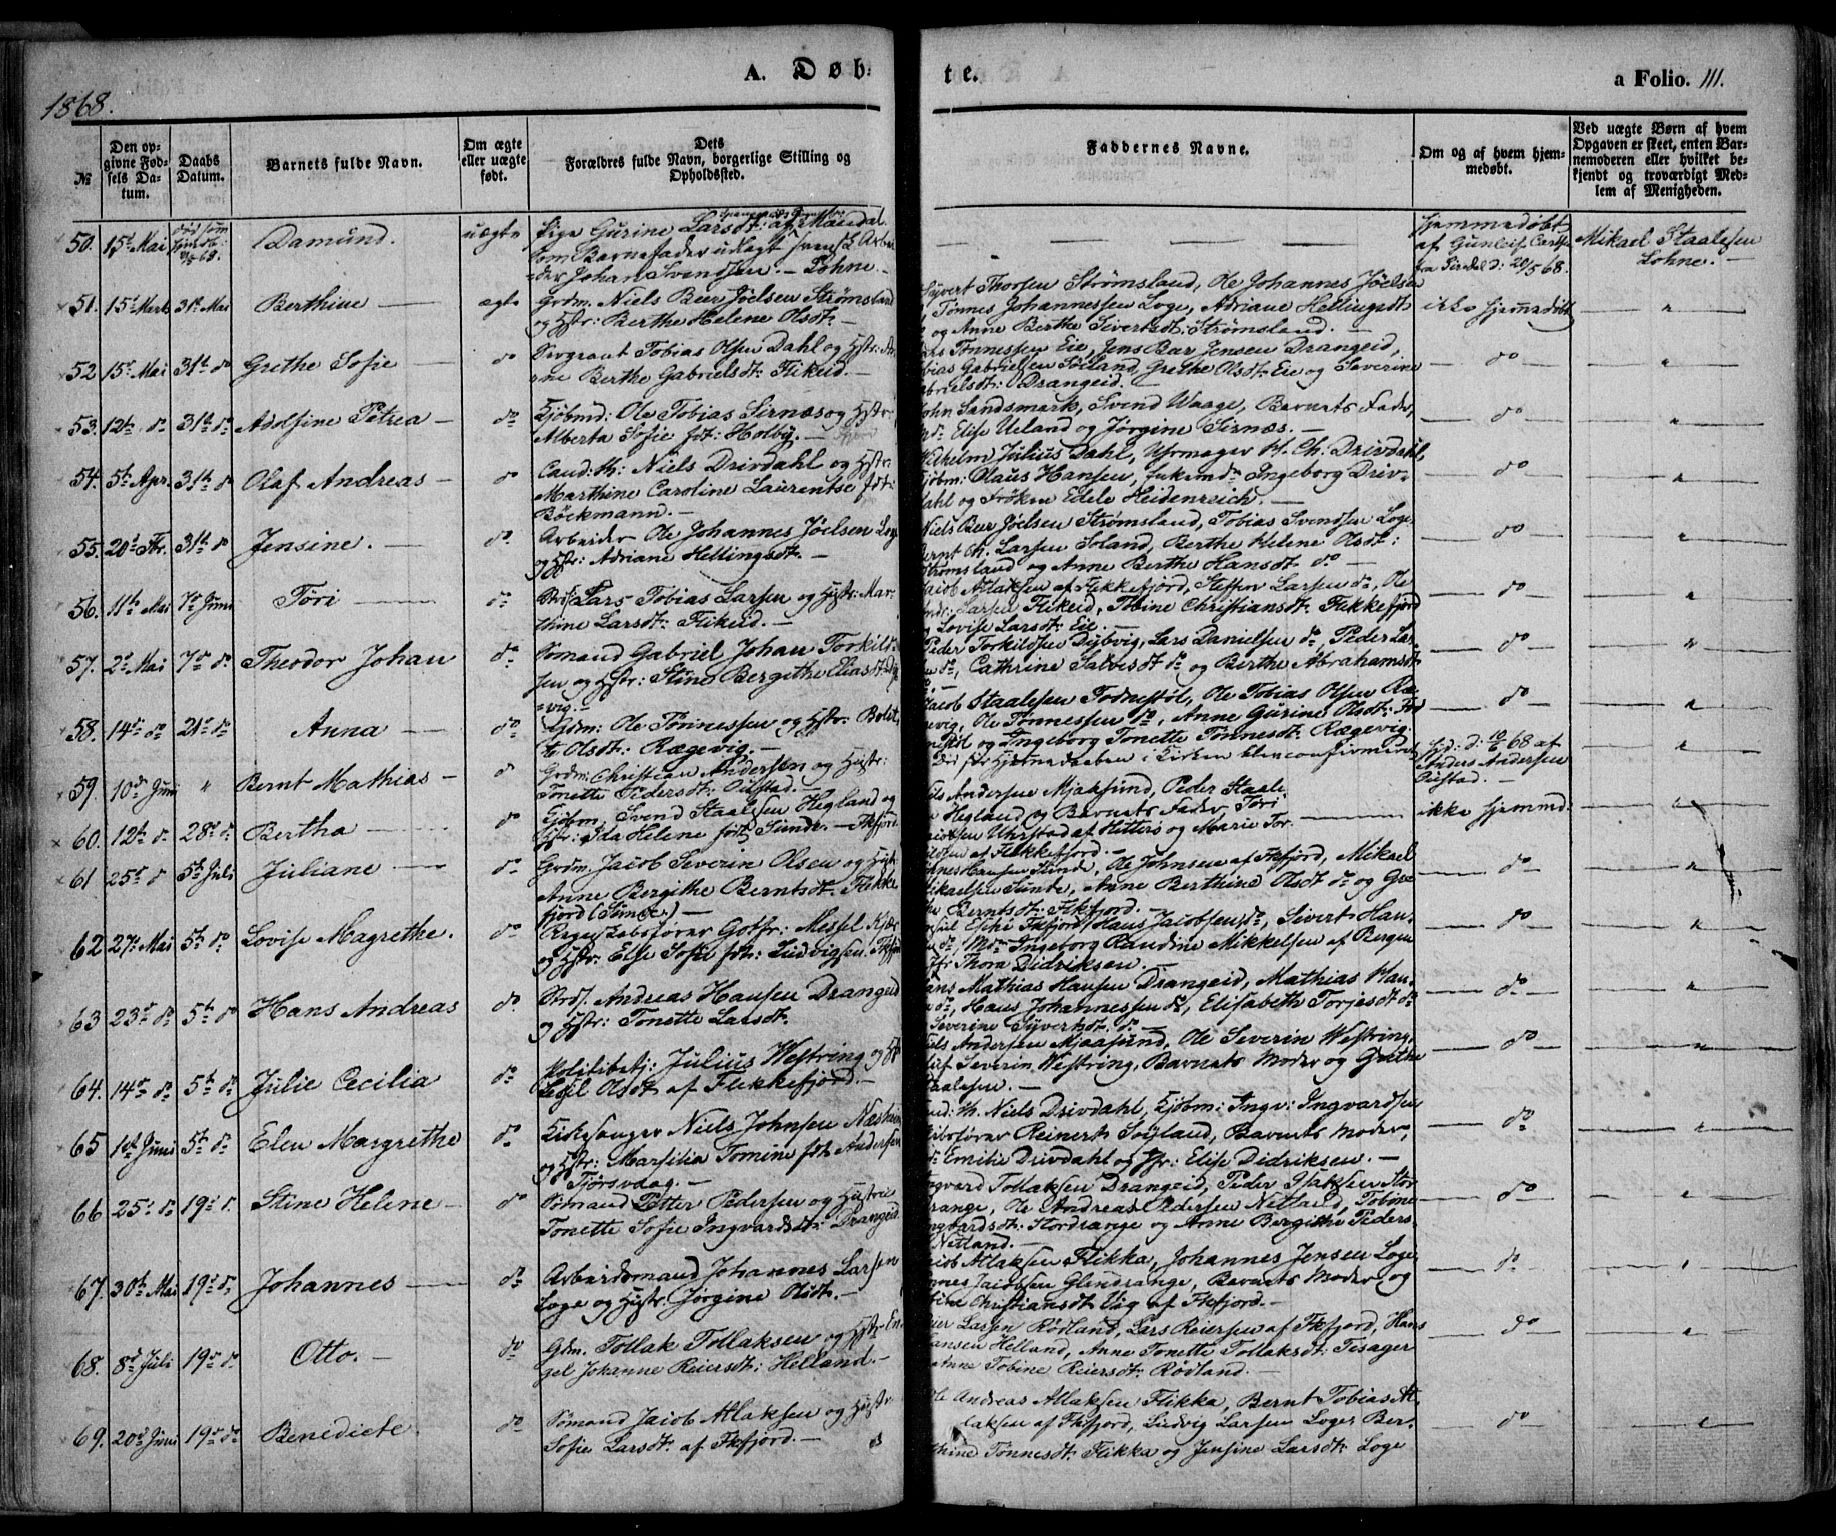 1868.
A. Døb-
te.
a Folio. 111.
№
Den op-
givne Fød-
sels Da-
tum.
Daabs
Datum.
Barnets fulde Navn.
Om ægte
eller uægte
født.
Dets
Forældres fulde Navn, borgerlige Stilling og
Opholdssted.
Faddernes Navne.
Om og af hvem hjem-
medøbt.
Ved uægte Børn af hvem
Opgaven er skeet, enten Bar-
nemoderen eller hvilket be-
kjendt og troværdigt Med-
lem af Menigheden.
50. 15d Mai Damund. uægte Pige Gurine Larsdt: af Mandal
som Barnefader udlagt svensk Arbei
der Johan Svendsen. - Lohne. -
Hjemmedøbt
af Gunleif
fra Sirdal d: 20/5 68.
Mikael Staalesen
Lohne. -
51. 15d Marts 31te Mai Berthine - ægte Grdm: Niels Beer Jöelsen Strømsland
og Hstr: Berthe Helene Olsdt: -
Syvert Thorsen Strømsland, Ole Johannes Jöelsen
Tønnes Johannessen Loge, Adriane Hellingsdt
og Anne Berthe Sivertsdt: Strømsland. -
ikke hjemmedøbt - " -
52 15d Mai 31te do Grethe Sofie - do Sergeant Tobias Olsen Dahl og Hstr: An-
ne Berthe Gabrielsdt: Flikeid. -
Tønnessen Eie, Jens Bar Jensen Drangeid,
Tobias Gabrielsen Søiland, Grethe Olsdt: Eie og Severine
Gabrielsdt: Drangeid. -
do - " -
53. 12te do 31te do Adolfine Petrea - do Kjøbmd: Ole Tobias Sirnæs og Hstr:
Alberta Sofie fdt: Holby. -
John Sandsmark, Svend Waage, Barnets Fader,
Elise Ueland og Jørgine Sirnæs. -
do - " -
54. 5te Apr. 31te do Olaf Andreas - do Cand: th: Niels Drivdahl og Hstr:
Marthine Caroline Laurentse fdt:
Böckmann. -
Wilhelm Julius Dahl, Uhrmager H. Ch: Drivdahl,
Kjøbm: Olaus Hansen, Ingeborg Driv-
dahl og Frøken Edele Heidenreich. -
do - " -
55. 20d Fbr. 31te do Jensine. - do Arbeider Ole Johannes Jöelsen Loge
og Hstr: Adriane Hellingsdt: -
Niels Beer Jöelsen Strømsland, Tobias Svendsen Loge
Bernt Ch. Larsen Søland, Berthe Helene Olsdt:
Strømsland og Anne Berthe Hansdt do -
do - " -
56. 11te Mai 7de Juni Töri - do Strds: Lars Tobias Larsen og Hustr: Mar-
thine Larsdt: Flikeid. -
Jacob Atlaksen af Flekkefjord, Steffen Larsen do, Ole
Larsen Flikeid, Tobine Christiansdt: Flikkefjord
og Lovise Larsdt: Eie. -
do - " -
57. 2d Mai 7de do Theodor Johan do Sømand Gabriel Johan Torkild-
sen og Hstr: Stine Bergithe Eliasdt: Dyb-
vig. -
Peder Torkildsen Dybvig, Lars Danielsen do, Peder Lar-
sen do, Cathrine Salvesdt do og Berthe Abrahamsdt
do. -
do - " -
58. 14de do 21de do Anna - do Grdm: Ole Tønnessen og Hstr: Bolet-
te Olsdt: Rægevig. -
Jacob Staalesen Todnestøl, Ole Tobias Olsen Ræ-
gevig, Ole Tønnessen do, Anne Gurine Olsdt: Tod
nestøl og Ingeborg Tonette Tønnesdt: Rægevig.
do - " -
59. 10de Juni " Bernt Mathias - do Grdm: Christian Andersen og Hustr:
Tonette Pedersdt: Oustad. -
Død før Hjemmedaaben i Kirken blev confirmeret
Hjd: d: 10/6 68 af
Anders Andersen
Oustad. -
- " -
60. 12te do 28de do Bertha - do Kjøbm. Svend Staalesen Hegland og
Hstr: Ida Helene fdt: Sunde. - Fkfjord.
Nils Andersen Mjaasund, Peder Staale
sen Hegland og Barnets Fader, Töri
Uhrstad af Hitterø og Marie Tor-
kildsen af Flikkefjord. -
ikke hjemmd: - " -
61 25de do 5te Juli Juliane - do Grdm. Jacob Severin Olsen og Hustr:
Anne Bergithe Berntsdt: Flikke
fjord (Sunde) -
Hansen Sunde, Ole Johnsen af Fkfjord, Mikael
Mikaelsen Sunde, Anne Berthine Olsdt do og Gre
the Berntsdt: Fkfjord. -
do - " -
62 27de Mai 5te do Lovise Magrethe. - do Gotfr: Messel Kjær
og Hstr: Else Sofie fdt: Ludvigsen. Fkfjord
Fkfjord, Hans Jacobsen do, Sivert Han-
sen do, Mdm Ingeborg Raudine Mikkelsen af Bergen
Jfr Thora Didriksen. -
do - " -
63 23de do 5te do Hans Andreas do Strds. Andreas Hansen Drangeid
og Hstr: Tonette Larsdt:
Hans Mathias Hansen Drangeid, Mathias Han-
sen do, Hans Johannessen do, Elisabeth Torjesdt do
Severine Syvertsdt. do -
do - " -
64. 14de do 5te do Julie Cecilia do Politibetj: Julius Westring og Hstr
Segil Olsdt af Flikkefjord. -
Nils Andersen Mjaasund, Ole Severin Westring,
Severin Westring, Barnets Moder og Grethe
Staalesen. -
do - " -
65 1ste Juni 5te do Elen Margrethe do Kirkesanger Niels Johnsen Næsheim
og Hstr: Marsilia Tomine fdt: Andersen
Tjørsvdag. -
Cand: th. Niels Drivdahl, Kjøbm: Ingv: Ingvardsen
Reinert Søyland, Barnets Moder,
Emilie Drivdahl og Jfr: Elise Didriksen. -
do - " -
66 25de do 19de do Stine Helene - do Sømand Petter Pedersen og Hustrue
Tonette Sofie Ingvardsdt: Drangeid
Ingvard Tollaksen Drangeid, Peder Isaksen Stor
drange, Ole Andreas Pedersen Netland, Tobine
Ingvardsdt: Stordrange og Anne Bergithe Peders-
dt Netland. -
do - " -
67. 30te Mai 19de do Johannes - do Arbeidsmand Johannes Larsen
Loge og Hustr: Jørgine Olsdt. -
Jacob Atlaksen Flikka, Johannes Jensen Loge,
Tønnes Jacobsen Glendrange, Barnets Moder, og
Christiansdt Uig af Fkfjord. -
do - " -
68. 8de Juli 19de do Otto. - do Gdm. Tollak Tollaksen og Hstr: En-
gel Johanne Reiersdt: Helland. -
Reier Larsen Rødland, Lars Reiersen af Fkfjord, Hans
Hansen Helland, Anne Tonette Tollaksdt: Tisager
Anne Tobine Reiersdt: Rødland. -
do - " -
69. 20de Juni 19de do Benedicte. do Sømand Jacob Atlaksen og Hustr
Sofie Larsdt: af Fkfjord. -
Ole Andreas Atlaksen Flikka, Bernt Tobias At-
laksen af Fkfjord, Ludvig Larsen Loge, Ber-
thine Tønnesdt: Flikka og Jensine Larsdt: Loge
do - " -